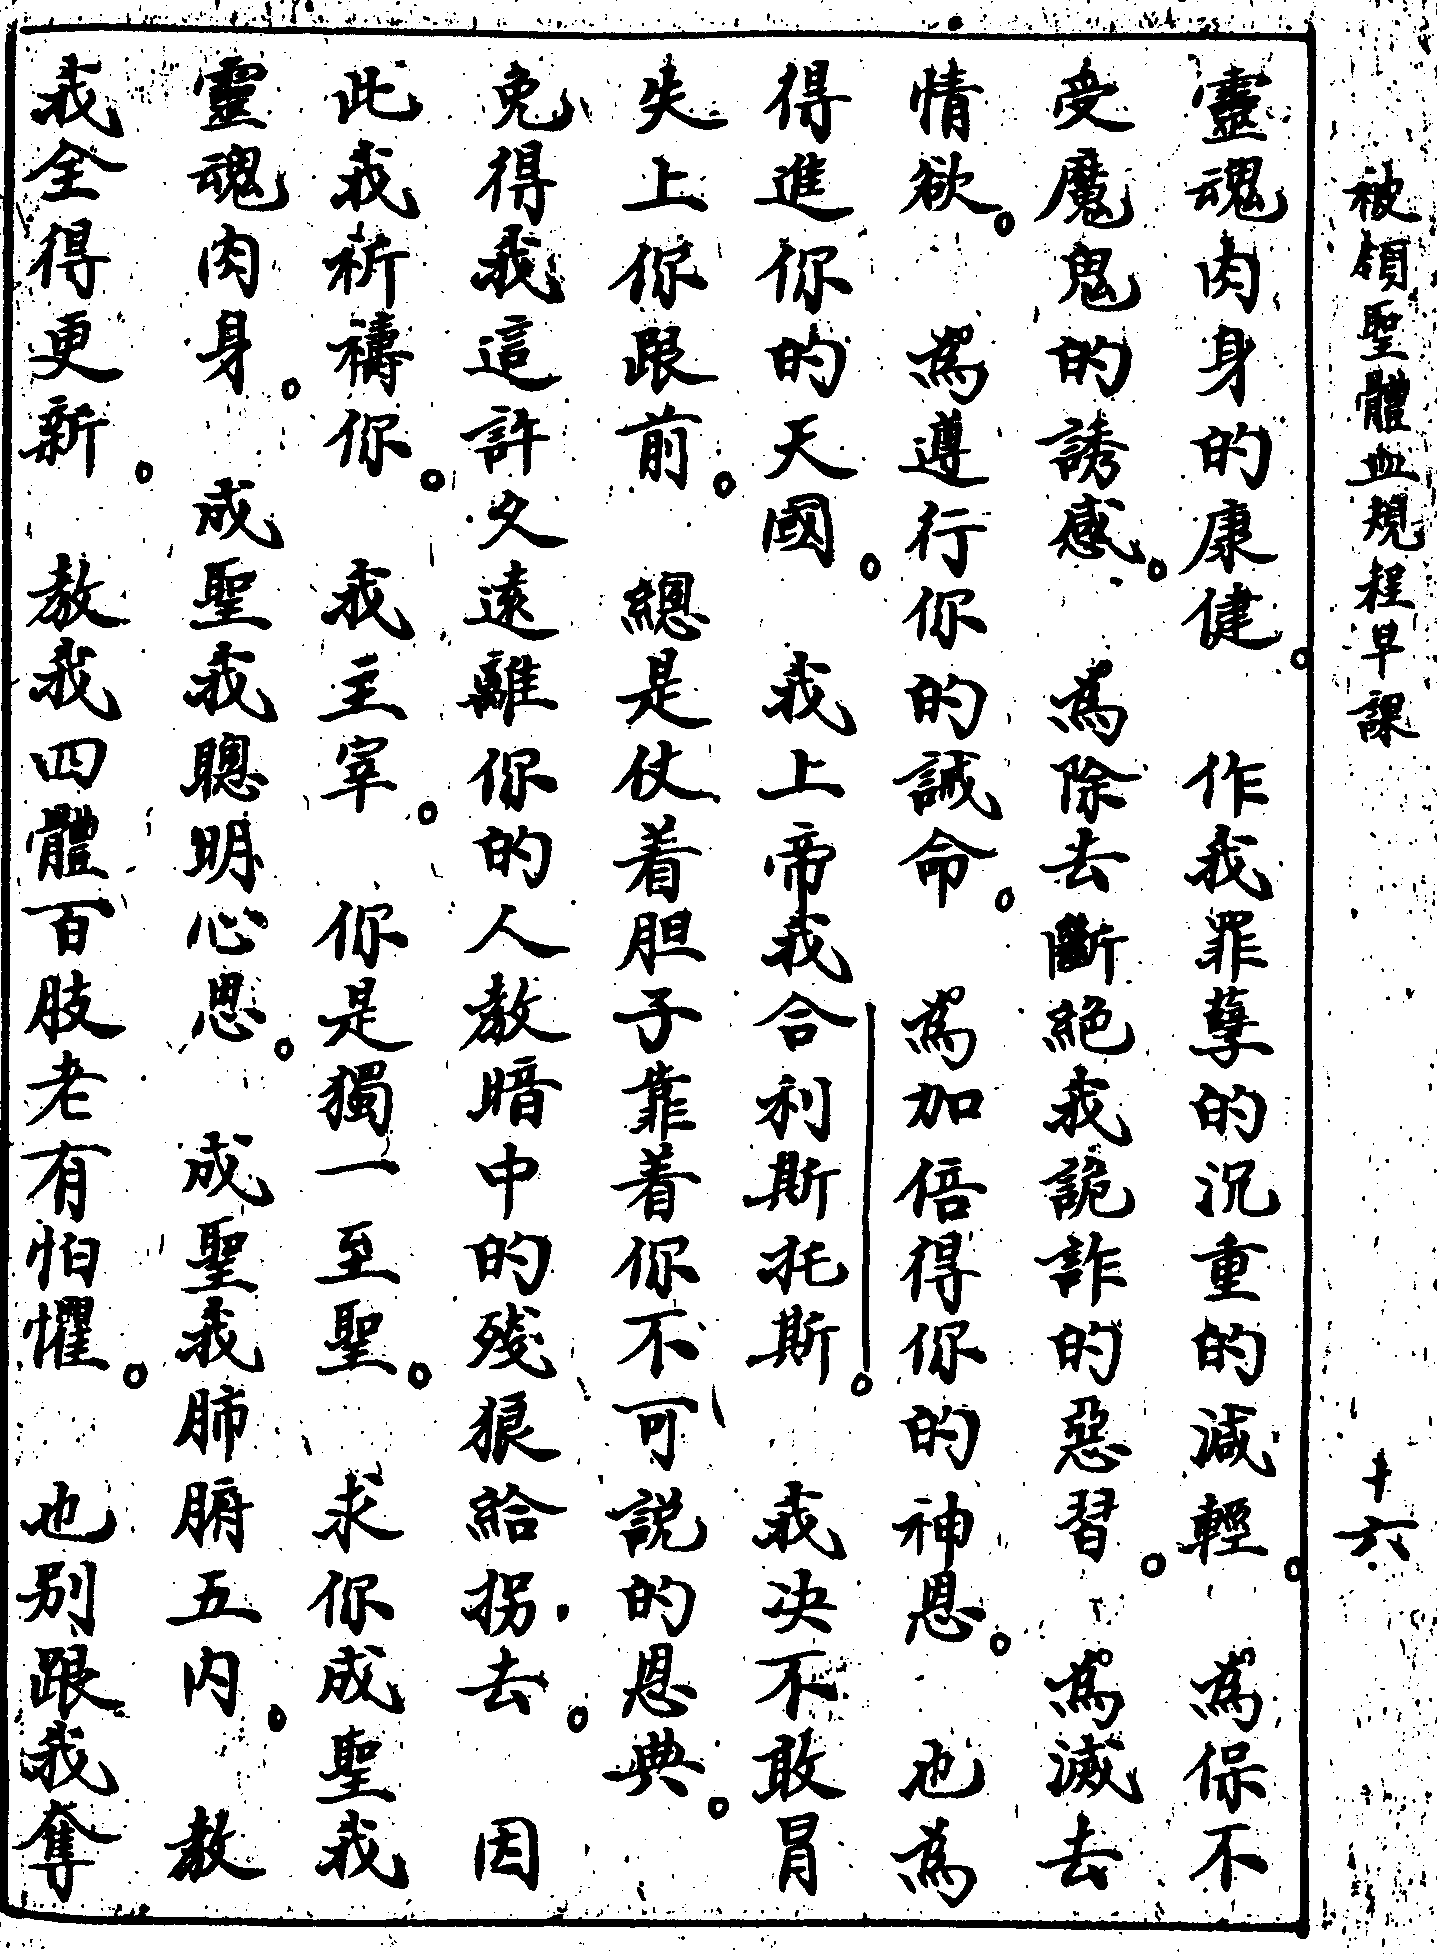 被領聖體血規程早課 十六
靈魂肉身的康健。作我罪孽的沉重的減輕。為保不
受魔鬼的誘感。為除去斷絕我詭詐的惡習。為滅去
情欲。為遵行你的誡命。為加倍得你的神恩。也為
得進你的天國。我上帝我合利斯托斯。我决不敢冒
失上你跟前。總是仗着胆子靠着你不可説的恩典。
免得我這許久遠離你的人教暗中的殘狼給拐去。因
此我祈禱你。我主宰。你是獨一至聖。求你成聖我
靈魂肉身。成聖我聰明心思。成聖我肺腑五內。教
我全得更新。教我四體百肢老有怕懼。也别跟我奪